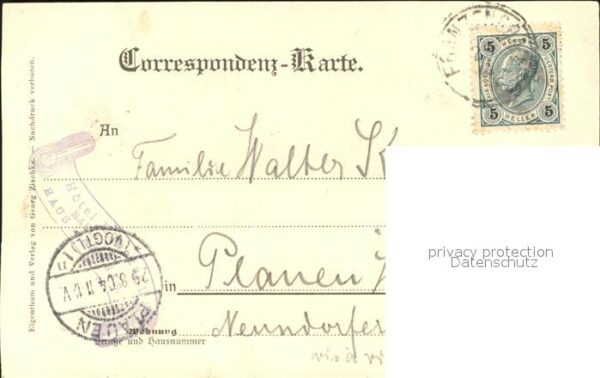 Correspondenz-Karte.
An
Familie Walter K
in
Plauen
Wohnung
Neundorfer
Straße und Hausnummer
vis à vi
Eigenthum und Verlag von Georg Zischka. — Nachdruck verboten.
5 5
5 HELLER 5
PLAUEN
(VOGTL)
29.8.04
privacy protection
Datenschutz